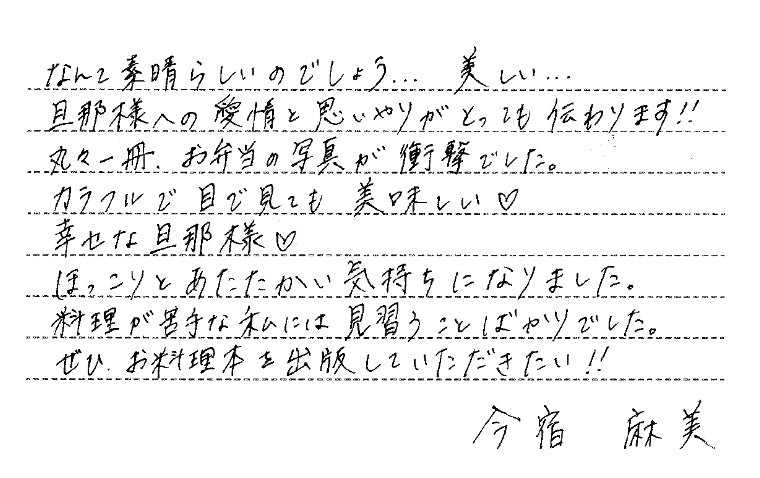 なんて素晴らしいのでしょう… 美しい…
旦那様への愛情と思いやりがとっても伝わります!!
丸々一冊、お弁当の写真が衝撃でした。
カラフルで目で見ても美味しい♡
幸せな旦那様♡
ほっこりとあたたかい気持ちになりました。
料理が苦手な私には見習うことばかりでした。
ぜひ、お料理本を出版していただきたい!!
今宿 麻美